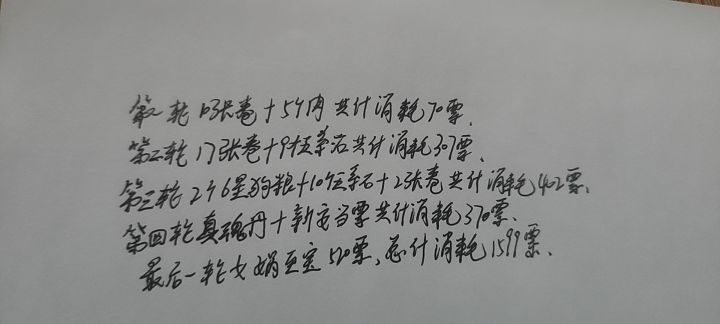 第一轮 10张卷+5个肉 共计消耗70票.
第二轮 17张卷+9狂暴石共计消耗307票.
第三轮 2个6星狗粮+10狂暴石+2张卷 共计消耗402票.
第四轮真魂丹+新当票共计消耗370票.
最后一轮女娲至宝 520票, 总计消耗1599票.